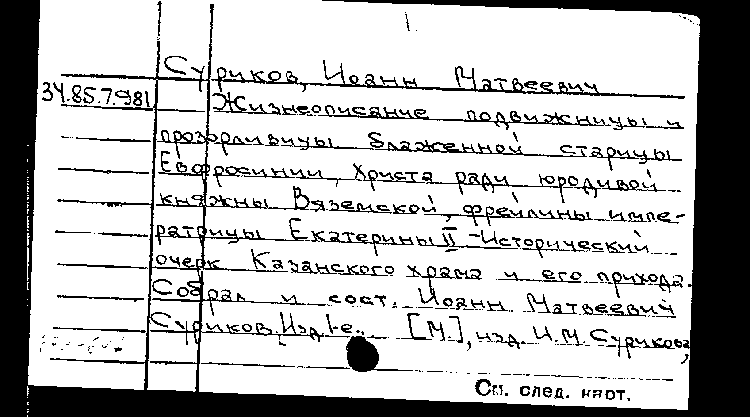 Суриков, Иоанн Матвеевич
34.85.7.981
Жизнеописание подвижницы и
прозорливицы блаженной старицы
Евфросинии, Христа ради юродивой
княжны Вяземской, фрейлины импе-
ратрицы Екатерины II - Исторический
очерк Казанского храма и его прихода.
Собрал и сост. Иоанн Матвеевич
Суриков. Изд. 1-е. [М.], изд. И.М. Сурикова,
См. след. карт.